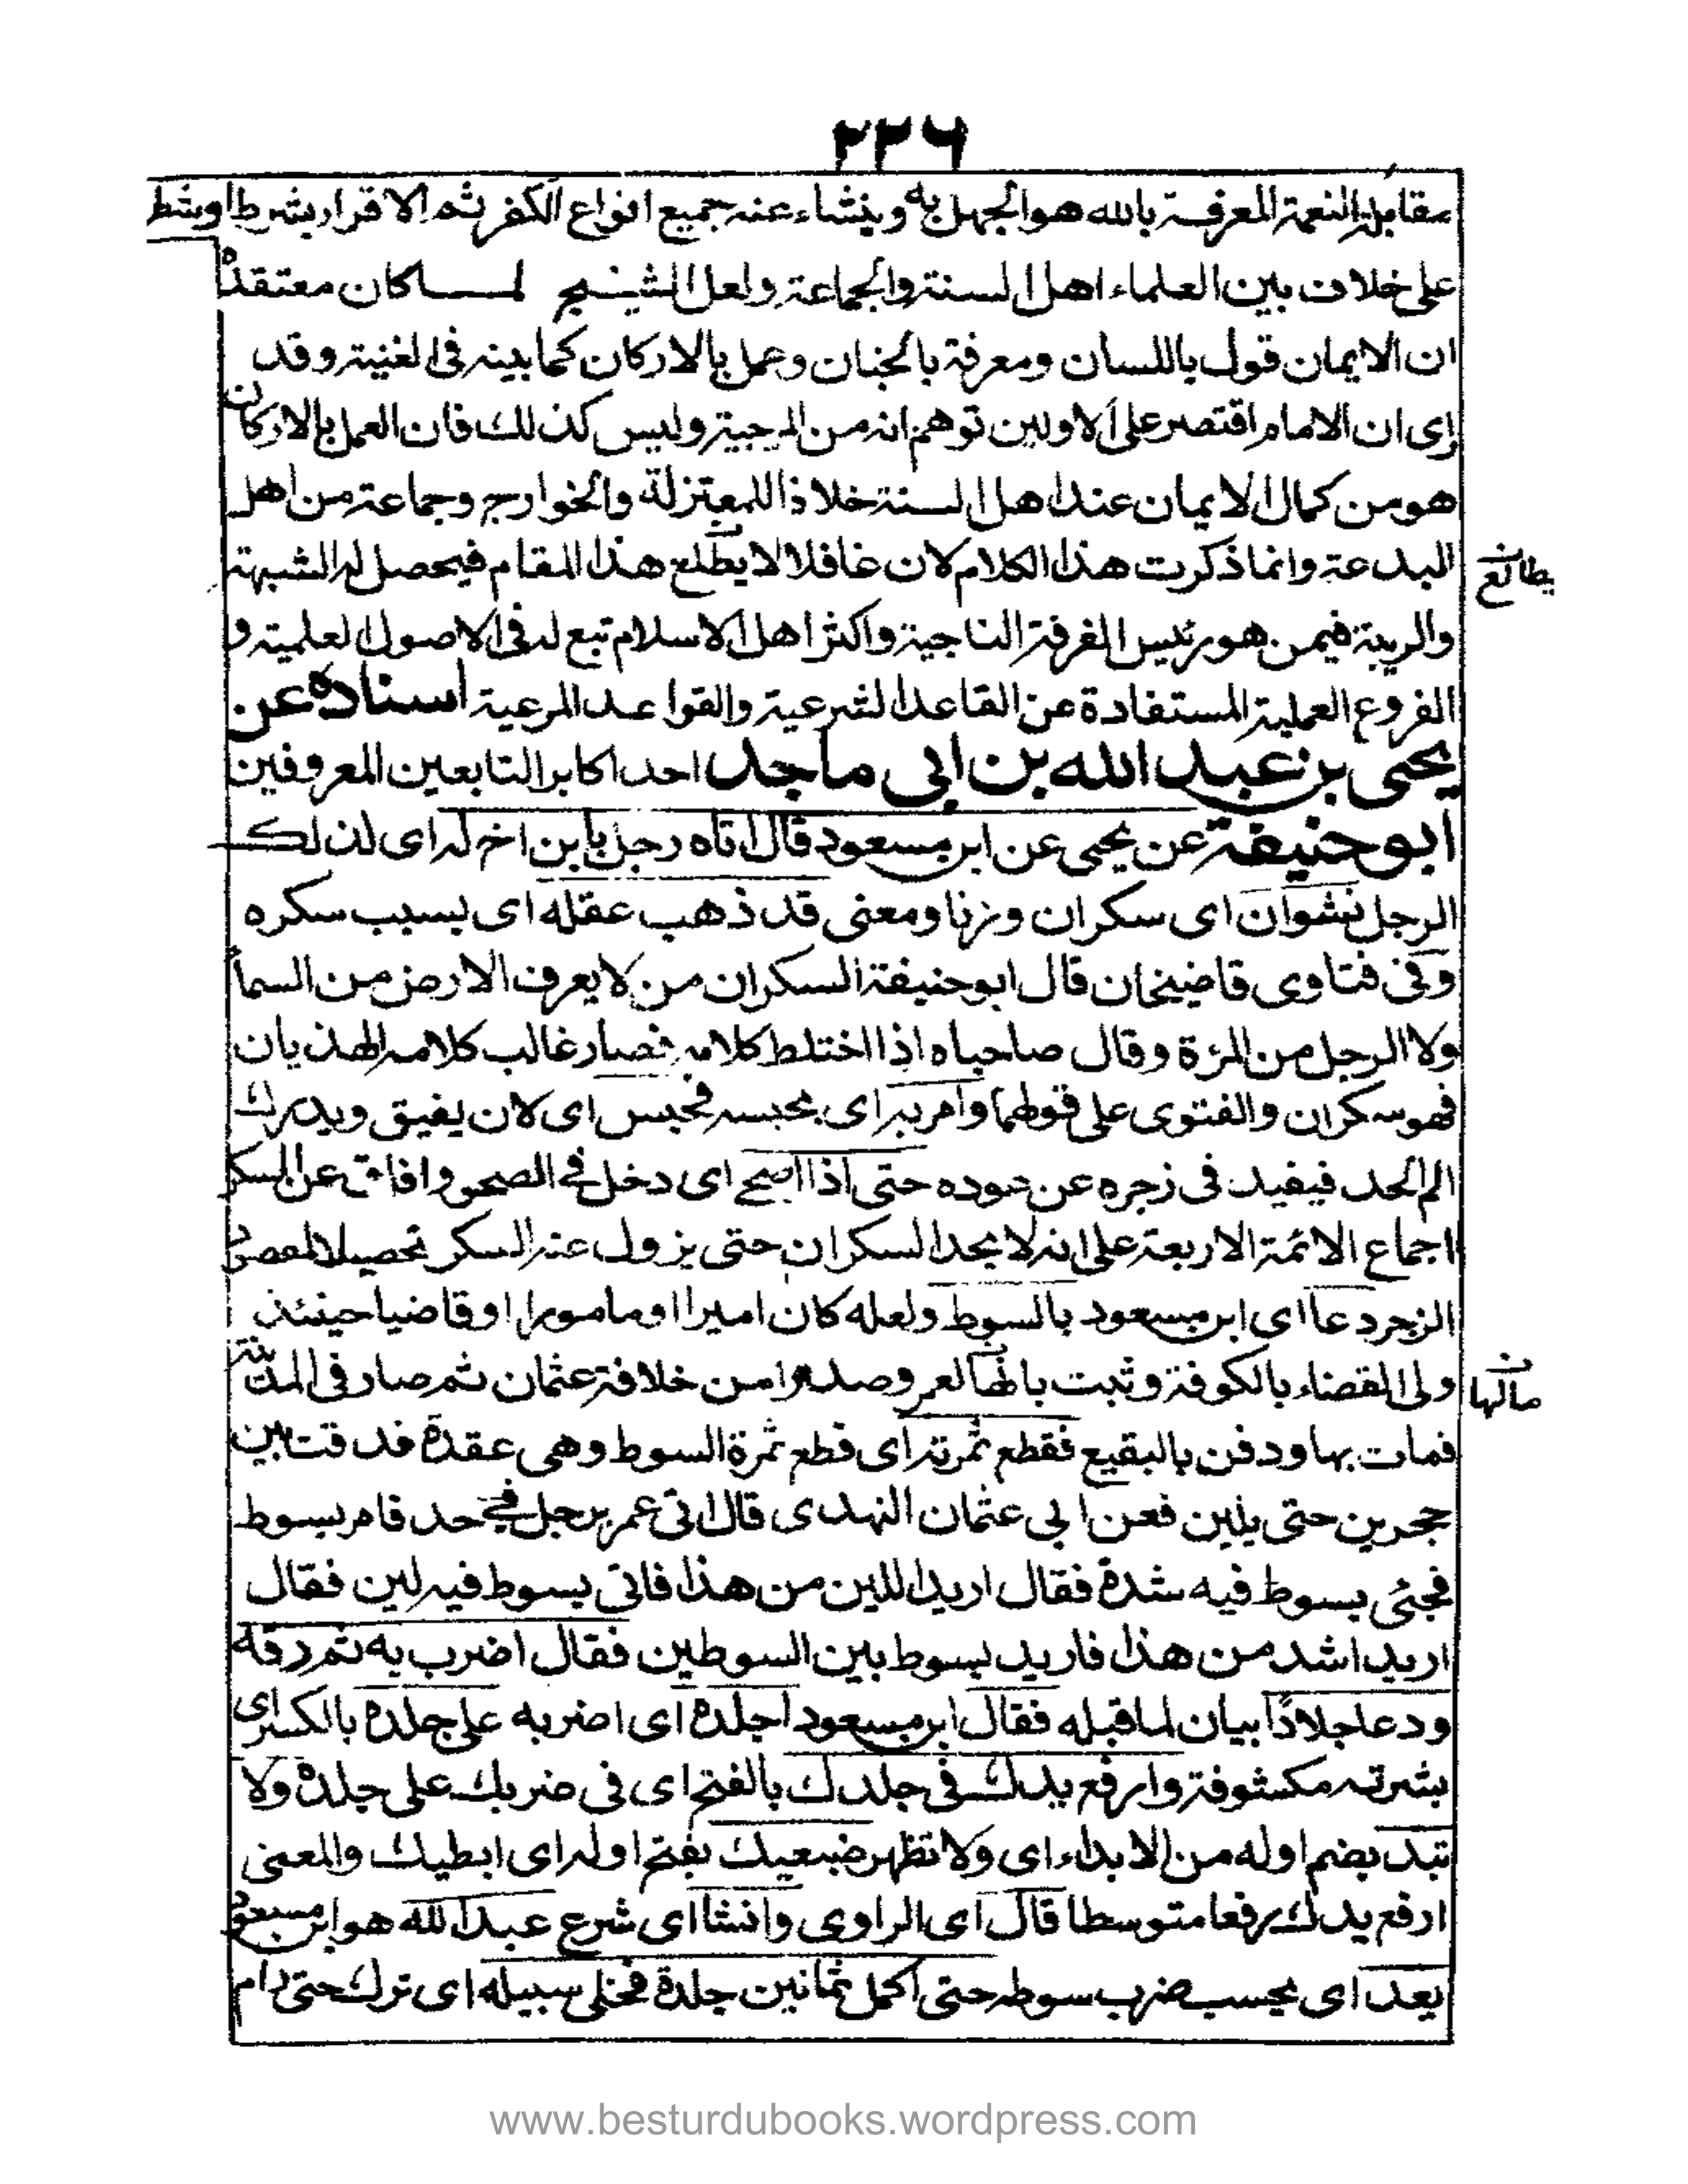 ۲۲۶
مقابلة النعمة المعرفة بالله هو الجهل به وينشاء عنه جميع انواع الكفر ثم الاقرار بشرط او شط
على خلاف بين العلماء اهل السنة والجماعة ولعل الشيخ لما كان معتقدا
ان الايمان قول باللسان ومعرفة بالجنان وعمل بالاركان كما بينه فى الغنية وقد
راى ان الامام اقتصر على الاولين توهم انه من المرجية وليس كذلك فان العمل بالاركان
هو من كمال الايمان عند اهل السنة خلافا للمعتزلة والخوارج وجماعة من اهل
البدعة وانما ذكرت هذا الكلام لان غافلا لا يطلع هذا المقام فيحصل له الشبهة
يطالع
والريبة فيمن هو رئيس الفرقة الناجية واكثر اهل الاسلام تبع له فى الاصول العلمية و
الفروع العملية المستفادة عن القاعد الشرعية والقواعد المرعية اسناده عن
يحيى بن عبد الله بن ابى ماجد احد اكابر التابعين المعروفين
ابو حنيفة عن يحيى عن ابن مسعود قال اتاه رجل بابن اخ له اى لذلك
الرجل نشوان اى سكران وزنا ومعنى قد ذهب عقله اى بسبب سكره
وفى فتاوى قاضيخان قال ابو حنيفة السكران من لا يعرف الارض من السماء
ولا الرجل من المرءة وقال صاحباه اذا اختلط كلامه فصار غالب كلامه الهذيان
فهو سكران والفتوى على قولهما وامر به اى بحبسه فحبس اى لان يفيق ويدرك
الم الحد فيفيد فى زجره عن عوده حتى اذا اصح اى دخل فى الصحو وافاق عن السكر
اجماع الائمة الاربعة على انه لا يحد السكران حتى يزول عنه السكر تحصيلا لمقصود
الزجر دعا اى ابن مسعود بالسوط ولعله كان اميرا او مامورا او قاضيا حينئذ
ولى القضاء بالكوفة وثبت بالها لعمر وصدرا من خلافة عثمان ثم صار فى المدينة
مالها
فمات بها ودفن بالبقيع فقطع ثمرته اى قطع ثمرة السوط وهى عقدة فدقت بين
حجرين حتى يلين فعن ابى عثمان النهدى قال اتى عمر برجل فى حد فامر بسوط
فجئى بسوط فيه شدة فقال اريد الين من هذا فاتى بسوط فيه لين فقال
اريد اشد من هذا فاريد بسوط بين السوطين فقال اضرب به ثم دقه
ودعا جلادا بيان لما قبله فقال ابن مسعود اجلده اى اضربه على جلده بالكسر اى
بشرته مكشوفة وارفع يدك فى جلدك بالفتح اى فى ضربك على جلده ولا
تبد بضم اوله من الابداء اى ولا تظهر ضبعيك بفتح اوله اى ابطيك والمعنى
ارفع يدك رفعا متوسطا قال اى الراوى وانشا اى شرع عبد الله هو ابن مسعود
يعد اى يحسب ضرب سوطه حتى اكمل ثمانين جلدة فخلى سبيله اى ترك حتى رام
www.besturdubooks.wordpress.com